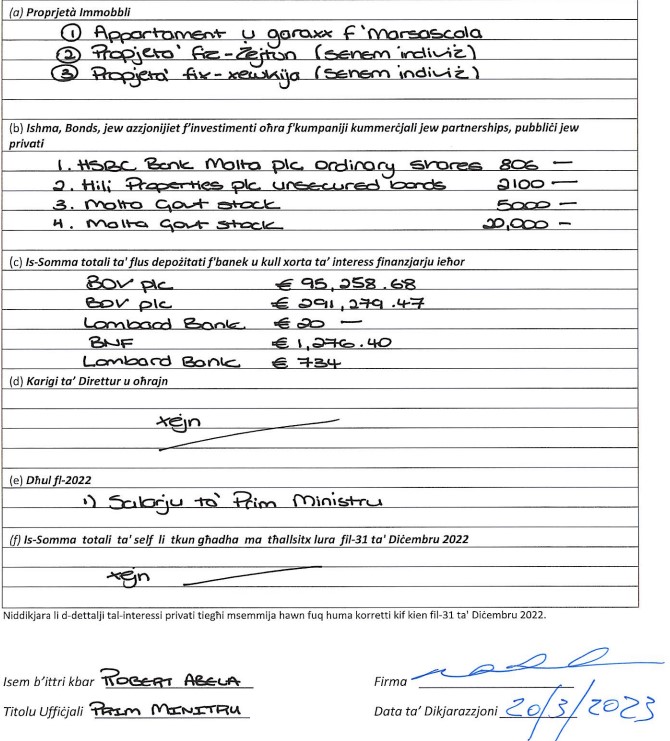 (a) Proprjetà Immobbli
1 Appartament u garaxx f'Marsascola
2 Propjeta' fiz-Żejtun (senem indiviż)
3 Propjeta' fix-xewkija (senem indiviż)
(b) Ishma, Bonds, jew azzjonijiet f'investimenti oħra f'kumpaniji kummerċjali jew partnerships, pubbliċi jew
privati
1. HSBC Bank Malta plc ordinary shares 806 —
2. Hili Properties plc unsecured bonds 2100 —
3. Malta Govt stock 5000 —
4. Malta Govt stock 20,000 —
(c) Is-Somma totali ta' flus depożitati f'banek u kull xorta ta' interess finanzjarju ieħor
BOV plc € 95,258.68
BOV plc € 291,279.47
Lombard Bank € 20 —
BNF € 1,276.40
Lombard Bank € 734
(d) Karigi ta' Direttur u oħrajn
xejn
(e) Dħul fl-2022
1) Salarju ta' Prim Ministru
(f) Is-Somma totali ta' self li tkun għadha ma tħallsitx lura fil-31 ta' Diċembru 2022
xejn
Niddikjara li d-dettalji tal-interessi privati tiegħi msemmija hawn fuq huma korretti kif kien fil-31 ta' Diċembru 2022.
Isem b'ittri kbar ROBERT ABELA Firma
Titolu Uffiċjali PRIM MINITRU Data ta' Dikjarazzjoni 20/3/2023